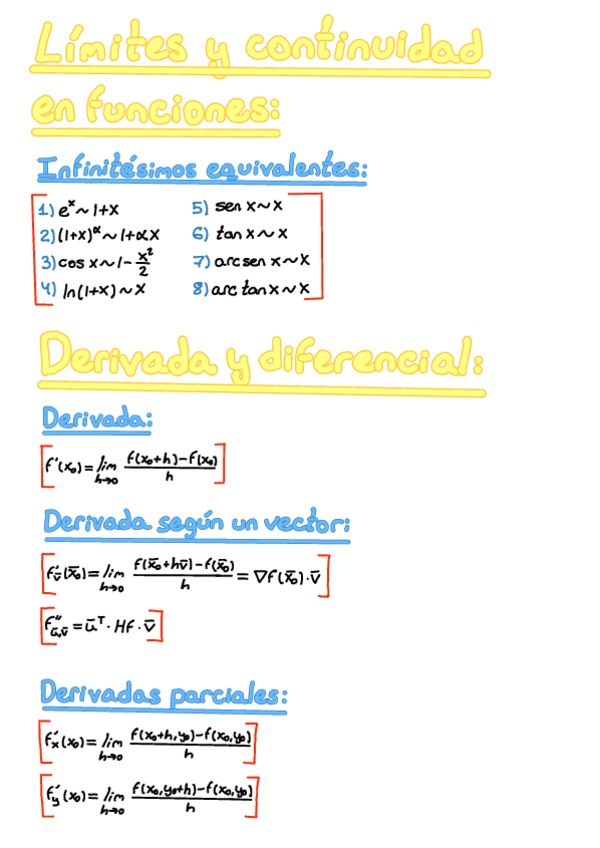 Límites y continuidad
en funciones:
Infinitésimos equivalentes:
1) eˣ ~ 1+x
2) (1+x)^α ~ 1+αx
3) cos x ~ 1 - x²/2
4) ln(1+x) ~ x
5) sen x ~ x
6) tan x ~ x
7) arcsen x ~ x
8) arc tan x ~ x
Derivada y diferencial:
Derivada:
f'(x₀) = lim h→0 (f(x₀+h)-f(x₀))/h
Derivada según un vector:
f'_v̄(x̄₀) = lim h→0 (f(x̄₀+hv̄)-f(x̄₀))/h = ∇f(x̄₀)·v̄
f''_ū,v̄ = ūᵀ · Hf · v̄
Derivadas parciales:
f'_x(x₀) = lim h→0 (f(x₀+h,y₀)-f(x₀,y₀))/h
f'_y(x₀) = lim h→0 (f(x₀,y₀+h)-f(x₀,y₀))/h